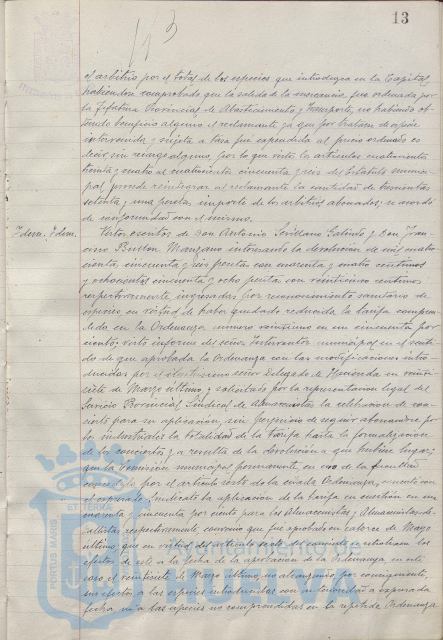 13
113
el arbitrio por el total de las especies que introduzca en la Capital,
habiéndose comprobado que la salida de la mercancía, fue ordenada por
la Jefatura Provincial de Abastecimientos y Transportes, no habiendo ob-
tenido beneficio alguno el reclamante ya que por tratarse de
intervenida y sujeta a tasa fue expendida al precio ordenado es
decir, sin recargo alguno, por lo que vistos los artículos cuatrocientos
treinta y cuatro al cuatrocientos cincuenta y seis del Estatuto munici-
pal, procede reintegrar al reclamante la cantidad de trescientas
setenta y una pesetas importe de los arbitrios abonados; se acordó
de conformidad con el mismo.
Idem. Idem.
Vistos escritos de Don Antonio Sevillano Galindo y Don Fran-
cisco Manzano interesando la devolución de mil cuatro-
cientas cincuenta y seis pesetas con cuarenta y cuatro céntimos
y ochocientas cincuenta y ocho pesetas con veinticinco céntimos
respectivamente ingresadas por reconocimiento sanitario de
especies en virtud de haber quedado reducida la tarifa compren-
dida en la Ordenanza número veintiuno en un cincuenta por
ciento; visto informe del señor Interventor municipal en el senti-
do de que aprobada la Ordenanza con las modificaciones intro-
ducidas por el Ilustrísimo señor Delegado de Hacienda en
siete de Marzo último y solicitado por la representación legal del
Servicio Provincial Sindical de Almacenistas la celebración de con-
cierto para su aplicación, sin perjuicio de seguir abonándose por
los industriales la totalidad de la tarifa hasta la formalización
de los conciertos y a resulta de la devolución que hubiere lugar;
que la Comisión municipal permanente, en uso de la facultad
concedida por el artículo sexto de la citada Ordenanza, concertó con
el expresado Sindicato la aplicación de la tarifa en cuestión en un
cuarenta y cincuenta por ciento para los Almacenistas y Almacenistas de-
tallistas respectivamente, convenio que fue aprobado en catorce de Mayo
último, que en virtud del artículo sexto del convenio se retrotraen los
efectos de este a la fecha de la aprobación de la Ordenanza, en este
caso el veintisiete de Marzo último, no alcanzando por consiguiente,
sus efectos a las especies introducidas con anterioridad a expresada
fecha, ni a las especies no comprendidas en la repetida Ordenanza
Ayuntamiento de
PORTUS MARIS
ET TERRA